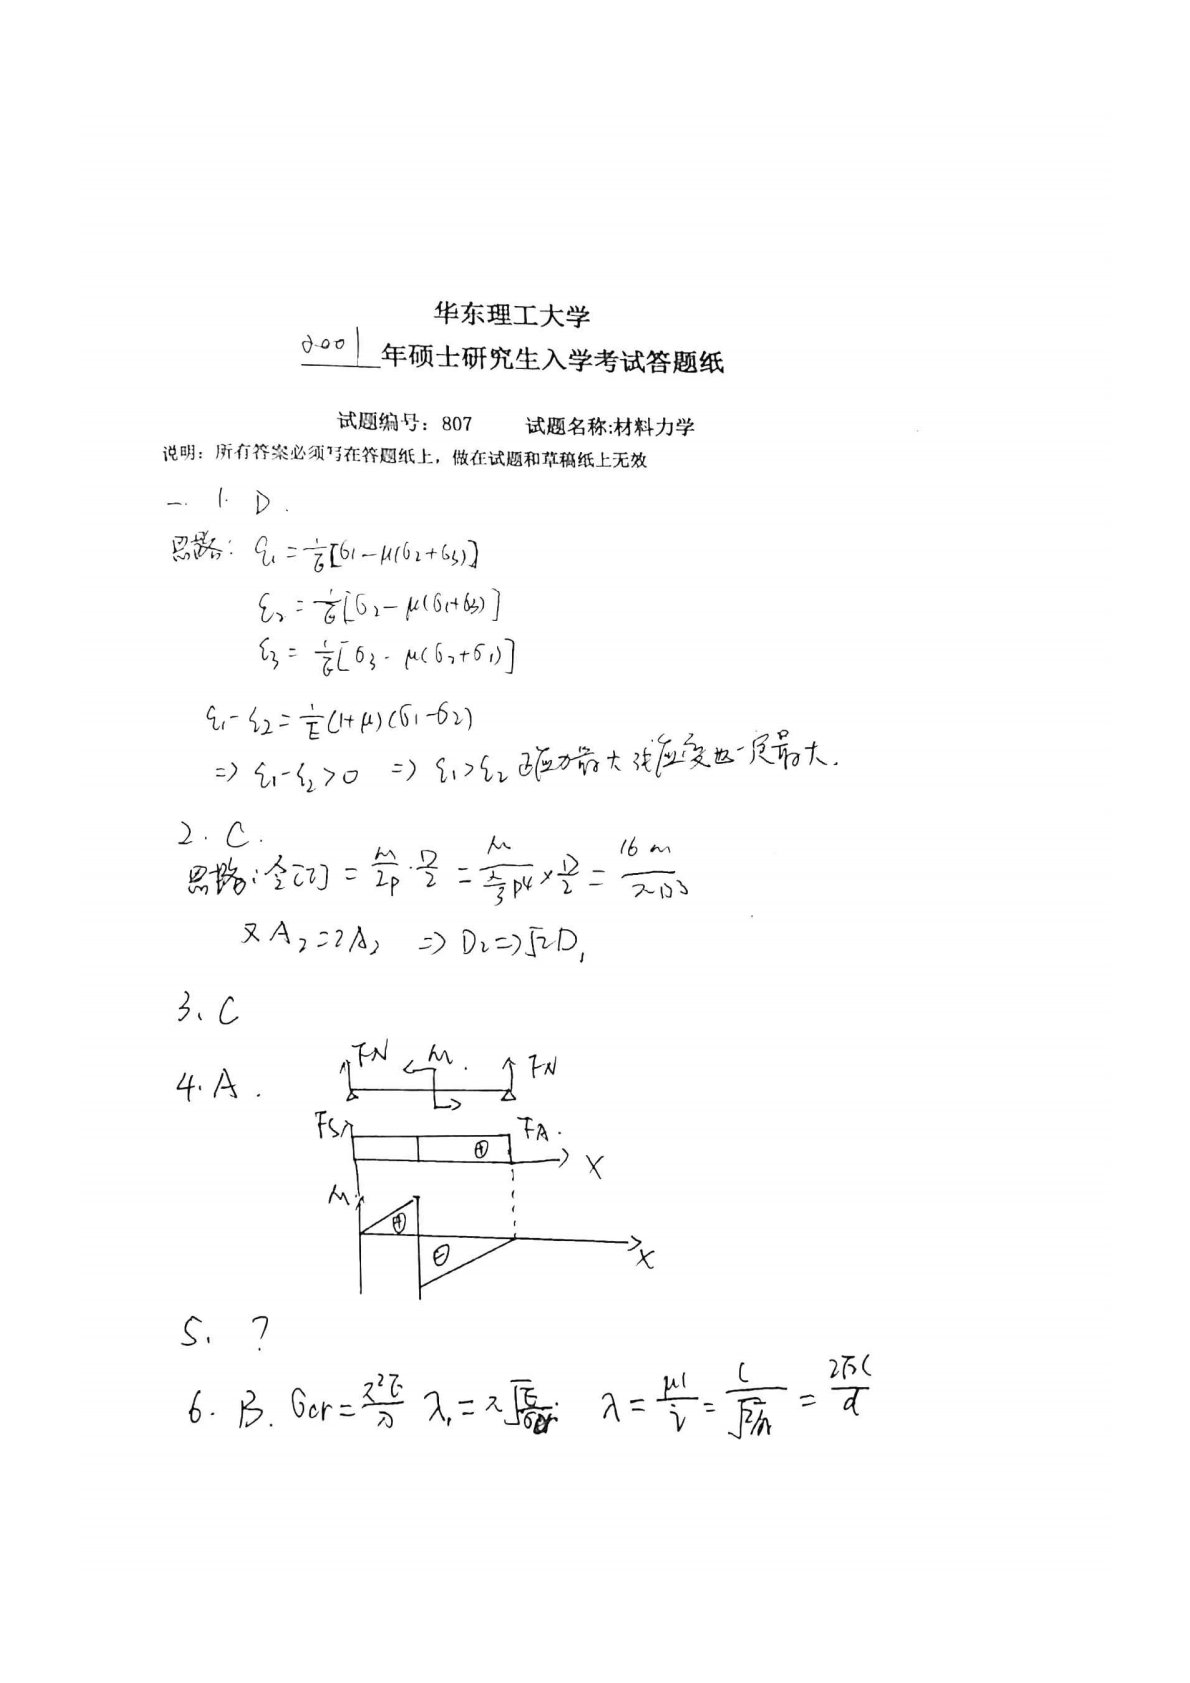 华东理工大学
2001年硕士研究生入学考试答题纸
试题编号：807 试题名称:材料力学
说明：所有答案必须写在答题纸上，做在试题和草稿纸上无效
一. 1. D.
思路： ε₁ = 1/E[σ₁-μ(σ₂+σ₃)]
ε₂ = 1/E[σ₂-μ(σ₁+σ₃)]
ε₃ = 1/E[σ₃-μ(σ₂+σ₁)]
ε₁-ε₂ = 1/E(1+μ)(σ₁-σ₂)
=> ε₁-ε₂>0 => ε₁>ε₂ 正应力最大线应变也一定最大.
2. C.
思路：令[τ] = M/Ip · D/2 = × D/2 = 16m/πD³
又A₂=2A₁ => D₂=>√2D₁
3、C
4. A.
FN M. FN
FS FA.
⊕ X
M
⊕
⊖ X
5. ?
6. B. σcr = π²E/λ λ₁ = π λ = μl/i = =